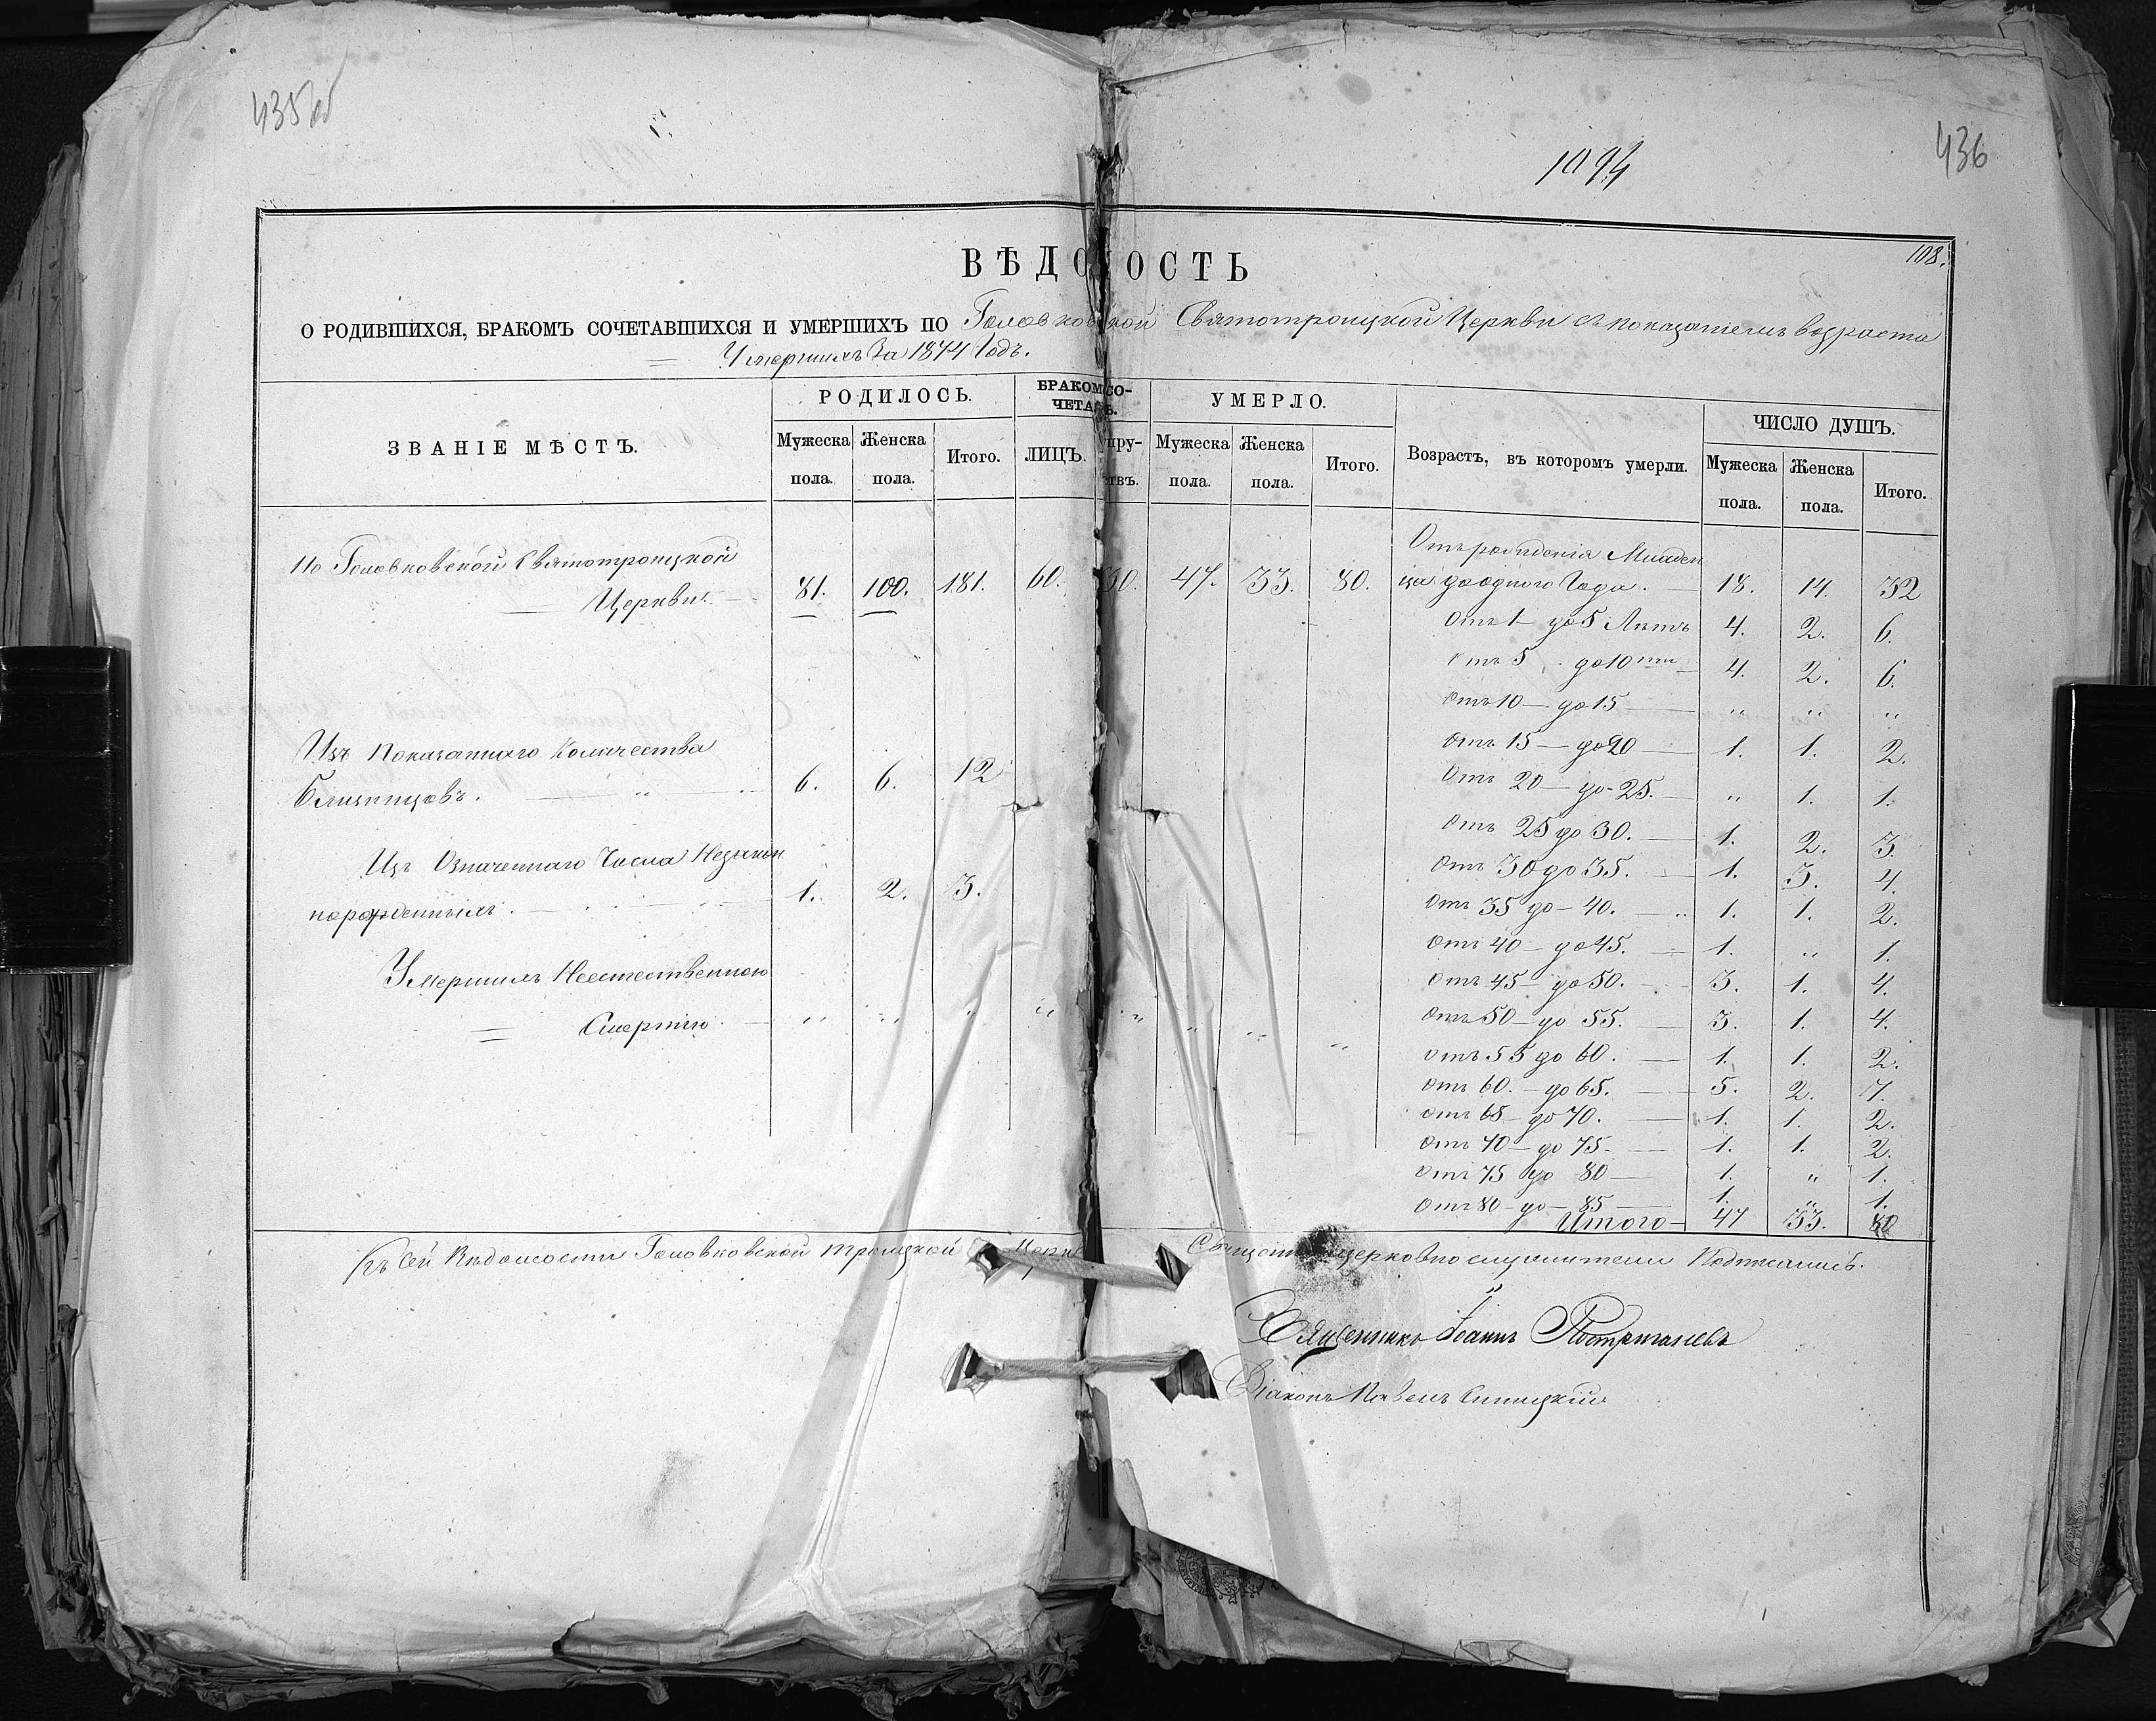 435об
1094
436
108.
ВѢДОМОСТЬ
О РОДИВШИХСЯ, БРАКОМЪ СОЧЕТАВШИХСЯ И УМЕРШИХЪ ПО Головковской Святотроицкой Церкви съ показаніемъ возраста
Умершихъ За 1874 Годъ.
ЗВАНІЕ МѢСТЪ. РОДИЛОСЬ. БРАКОМ СО- УМЕРЛО. Возрастъ, въ которомъ умерли. ЧИСЛО ДУШЪ.
ЧЕТАЛ Ь.
Мужеска Женска Итого. ЛИЦЪ. пру- Мужеска Женска Итого. Мужеска Женска Итого.
пола. пола. ствъ. пола. пола. пола. пола.
По Головковской Святотроицкой
Церкви. 81. 100. 181. 60. 30. 47. 33. 80.
Отъ рожденія Младен
ца до одного Года. 18. 14. 32
Отъ 1 до 5 Лѣтъ 4. 2. 6.
Отъ 5 до 10ти 4. 2. 6.
Отъ 10 — до 15 " " "
Отъ 15 — до 20 1. 1. 2.
Отъ 20 — до 25. " 1. 1.
Отъ 25 до 30. 1. 2. 3.
Отъ 30 до 35. 1. 3. 4.
Отъ 35 до — 40. 1. 1. 2.
Отъ 40 — до 45. 1. " 1.
Отъ 45 — до 50. 3. 1. 4.
Отъ 50 — до 55. 3. 1. 4.
Отъ 55 до 60. 1. 1. 2.
Отъ 60. — до 65. 5. 2. 7.
Отъ 65 — до 70. 1. 1. 2.
Отъ 70 — до 75 1. 1. 2.
Отъ 75 до 80 — 1. " 1.
Отъ 80 — до — 85 1. " 1.
Итого — 47 33. 80
Изъ Показаннаго Количества
Близнецовъ. 6. 6. 12
Изъ Означеннаго Числа Незакон
норожденныхъ. 1. 2. 3.
Умершихъ Неестественною
Смертію. " " " " " " " "
Къ сей Вѣдомости Головковской Троицкой Церкв Священноцерковнослужители Подписались.
Священникъ Іоаннъ Постригачевъ
Діаконъ Павелъ Синицкій